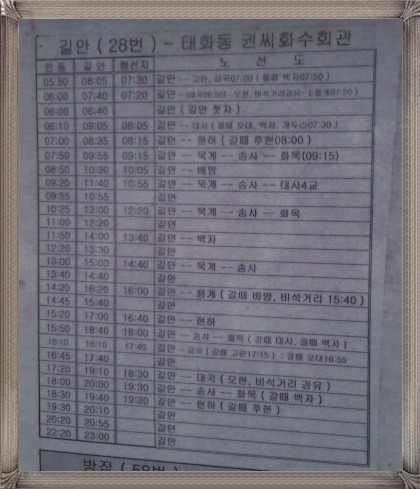 길안 (28번) - 태화동 권씨화수회관
안 동 길 안 행선지 노 선 도
05:50 08:05 07:30 길안 -- 고란, 금곡07:00 (올때 백자07:50)
06:00 07:40 07:20 길안 오현, 비석거리경유
06:00 06:40 길안 (길안 첫차)
06:10 09:05 08:05 길안 -- 대사 (올때 오대, 백자, 개누리07:30)
07:00 08:35 08:15 길안 -- 현하 (갈때 후현08:00)
07:50 09:55 09:15 길안 -- 묵계 -- 송사 -- 화목(09:15)
08:50 10:30 10:05 길안 -- 배방
09:20 11:40 10:55 길안 -- 묵계 -- 송사 -- 대사4교
09:55 10:55 길안
10:25 13:00 12:20 길안 -- 묵계 -- 송사 -- 화목
11:00 12:20 길안
11:50 14:00 13:40 길안 -- 백자
12:20 13:30 길안
13:00 15:00 14:40 길안 -- 묵계 -- 송사
13:40 14:40 길안
14:20 16:20 16:00 길안 -- 용계 (갈때 배방, 비석거리 15:40)
14:45 15:40 길안
15:20 17:00 16:40 길안 -- 현하
15:50 18:40 18:00 길안 -- 송사 -- 화목 (갈때 대사, 올때 백자)
16:10 18:10 17:40 길안 -- 금곡 (갈때 고란17:15) : 갈때 오대16:55
16:45 17:40 길안
17:20 19:10 18:30 길안 -- 대곡 (모현, 비석거리 경유)
18:00 20:00 19:30 길안 -- 송사 -- 화목 (갈때 백자)
18:30 19:40 19:30 길안 -- 현하 (갈때 후현)
19:30 20:10 길안
20:20 20:55 길안
22:20 23:00 길안